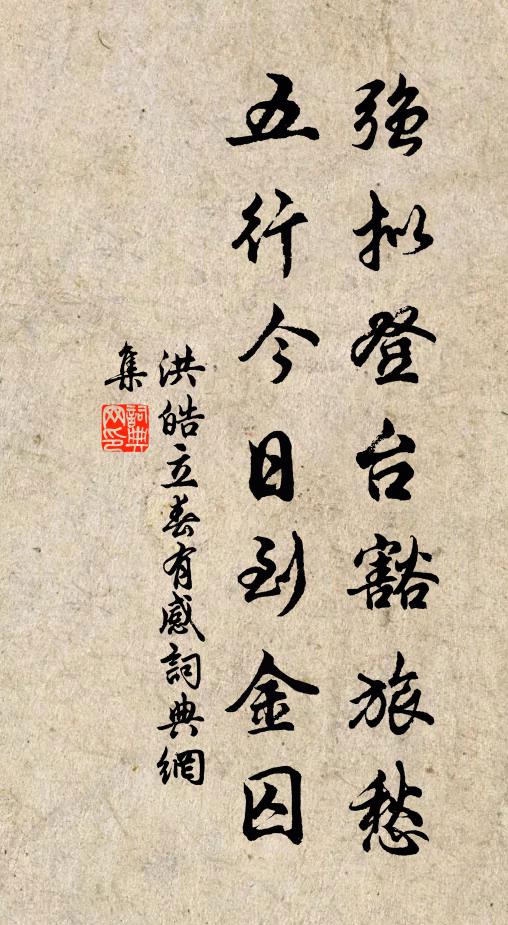 强拟登台豁旅愁
五行今日到金囚
洪皓立春有感詞典網
集
詞典
网印